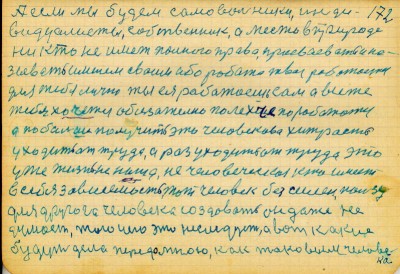 А если мы будем самовольники, инди- 172
видуалисты, собственник, а место в природе
никто не имет полного права присваевать и на-
зиветь именем своим або работа твоя работается
для тебя лично ты ея работаеш сам а в неже
тебя хочется обизательно полехче поработать
а побольш получить это человескоя хитрасть
уходить от труда, а раз уходить от труда это
уже жизнь не наша, не человеческая кто имеет
в себя зависемость тот человек безсилен, пользу
для другога человека создовать он даже не
думает, того чего это неследует, а вот какие
будут дела передомною, как таковым челове-
ка